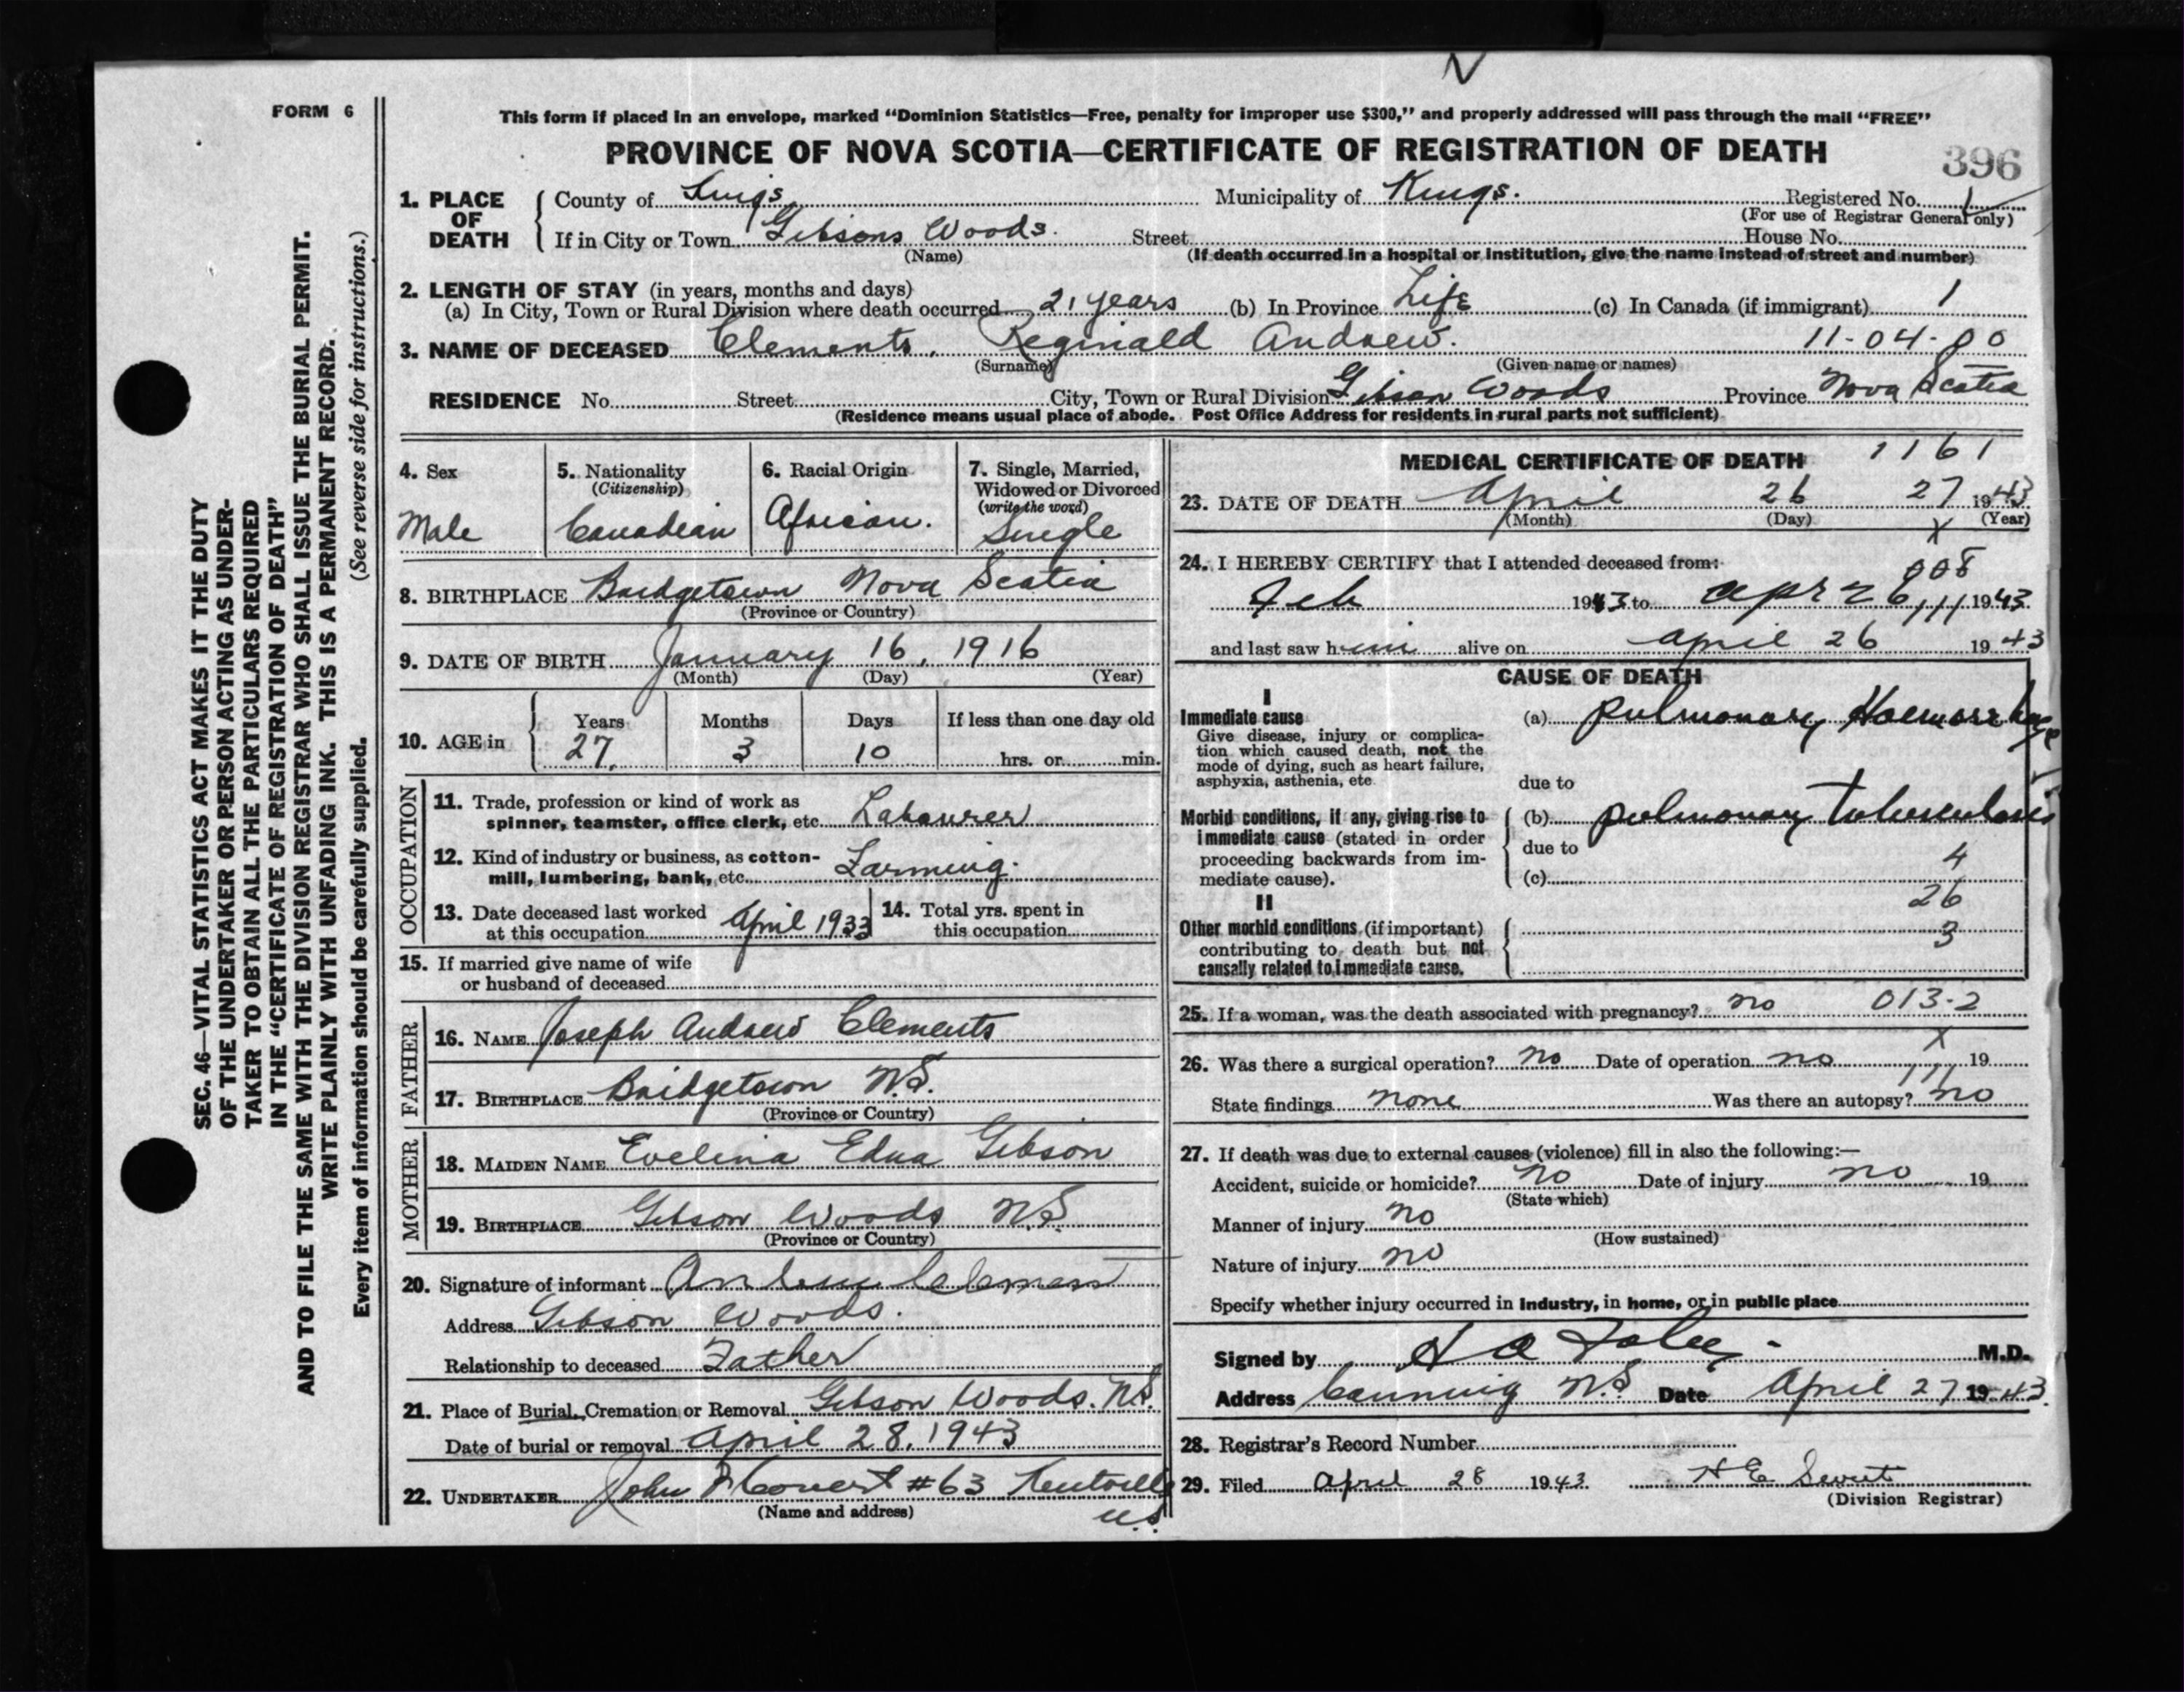 FORM 6
This form if placed in an envelope, marked "Dominion Statistics—Free, penalty for improper use $300," and properly addressed will pass through the mail "FREE"
PROVINCE OF NOVA SCOTIA—CERTIFICATE OF REGISTRATION OF DEATH
396
SEC. 46—VITAL STATISTICS ACT MAKES IT THE DUTY
OF THE UNDERTAKER OR PERSON ACTING AS UNDER-
TAKER TO OBTAIN ALL THE PARTICULARS REQUIRED
IN THE "CERTIFICATE OF REGISTRATION OF DEATH"
AND TO FILE THE SAME WITH THE DIVISION REGISTRAR WHO SHALL ISSUE THE BURIAL PERMIT.
WRITE PLAINLY WITH UNFADING INK. THIS IS A PERMANENT RECORD.
Every item of information should be carefully supplied. (See reverse side for instructions.)
1. PLACE OF DEATH
County of Kings Municipality of Kings. Registered No. 1
(For use of Registrar General only)
If in City or Town Gibsons Woods. Street House No.
(Name) (If death occurred in a hospital or institution, give the name instead of street and number)
2. LENGTH OF STAY (in years, months and days)
(a) In City, Town or Rural Division where death occurred 21 years (b) In Province Life (c) In Canada (if immigrant) 1
3. NAME OF DECEASED Clements, Reginald Andrew. 11-04-00
(Surname) (Given name or names)
RESIDENCE No. Street City, Town or Rural Division Gibson Woods Province Nova Scotia
(Residence means usual place of abode. Post Office Address for residents in rural parts not sufficient)
4. Sex
Male
5. Nationality
(Citizenship)
Canadian
6. Racial Origin
African.
7. Single, Married,
Widowed or Divorced
(write the word)
Single
8. BIRTHPLACE Bridgetown Nova Scotia
(Province or Country)
9. DATE OF BIRTH January 16, 1916
(Month) (Day) (Year)
10. AGE in Years Months Days If less than one day old
27 3 10 hrs. or min.
OCCUPATION
11. Trade, profession or kind of work as
spinner, teamster, office clerk, etc. Labourer
12. Kind of industry or business, as cotton-
mill, lumbering, bank, etc. Farming.
13. Date deceased last worked
at this occupation April 1933
14. Total yrs. spent in
this occupation
15. If married give name of wife
or husband of deceased
FATHER
16. NAME Joseph Andrew Clements
17. BIRTHPLACE Bridgetown N.S.
(Province or Country)
MOTHER
18. MAIDEN NAME Evelina Edna Gibson
19. BIRTHPLACE Gibson Woods N.S.
(Province or Country)
20. Signature of informant
Address Gibson Woods.
Relationship to deceased Father
21. Place of Burial, Cremation or Removal Gibson Woods. N.S.
Date of burial or removal April 28, 1943
22. UNDERTAKER John Covert #63 Kentville
(Name and address) N.S.
MEDICAL CERTIFICATE OF DEATH 1161
23. DATE OF DEATH April 26 27 1943
(Month) (Day) X (Year)
24. I HEREBY CERTIFY that I attended deceased from: 008
Feb 1943 to Apr 26 111 1943
and last saw him alive on April 26 1943
CAUSE OF DEATH
I
Immediate cause
Give disease, injury or complica-
tion which caused death, not the
mode of dying, such as heart failure,
asphyxia, asthenia, etc
(a) pulmonary Haemorrhage
due to
Morbid conditions, if any, giving rise to
immediate cause (stated in order
proceeding backwards from im-
mediate cause).
(b) pulmonary tuberculosis
due to
4
(c)
26
II
Other morbid conditions (if important)
contributing to death but not
causally related to immediate cause.
3
25. If a woman, was the death associated with pregnancy? no 013-2
26. Was there a surgical operation? no Date of operation no X 19
State findings none Was there an autopsy? 111 no
27. If death was due to external causes (violence) fill in also the following:—
Accident, suicide or homicide? no Date of injury no 19
(State which)
Manner of injury no
(How sustained)
Nature of injury no
Specify whether injury occurred in industry, in home, or in public place
Signed by H A Foley M.D.
Address Canning N.S. Date April 27 1943.
28. Registrar's Record Number
29. Filed April 28 1943 H E
(Division Registrar)